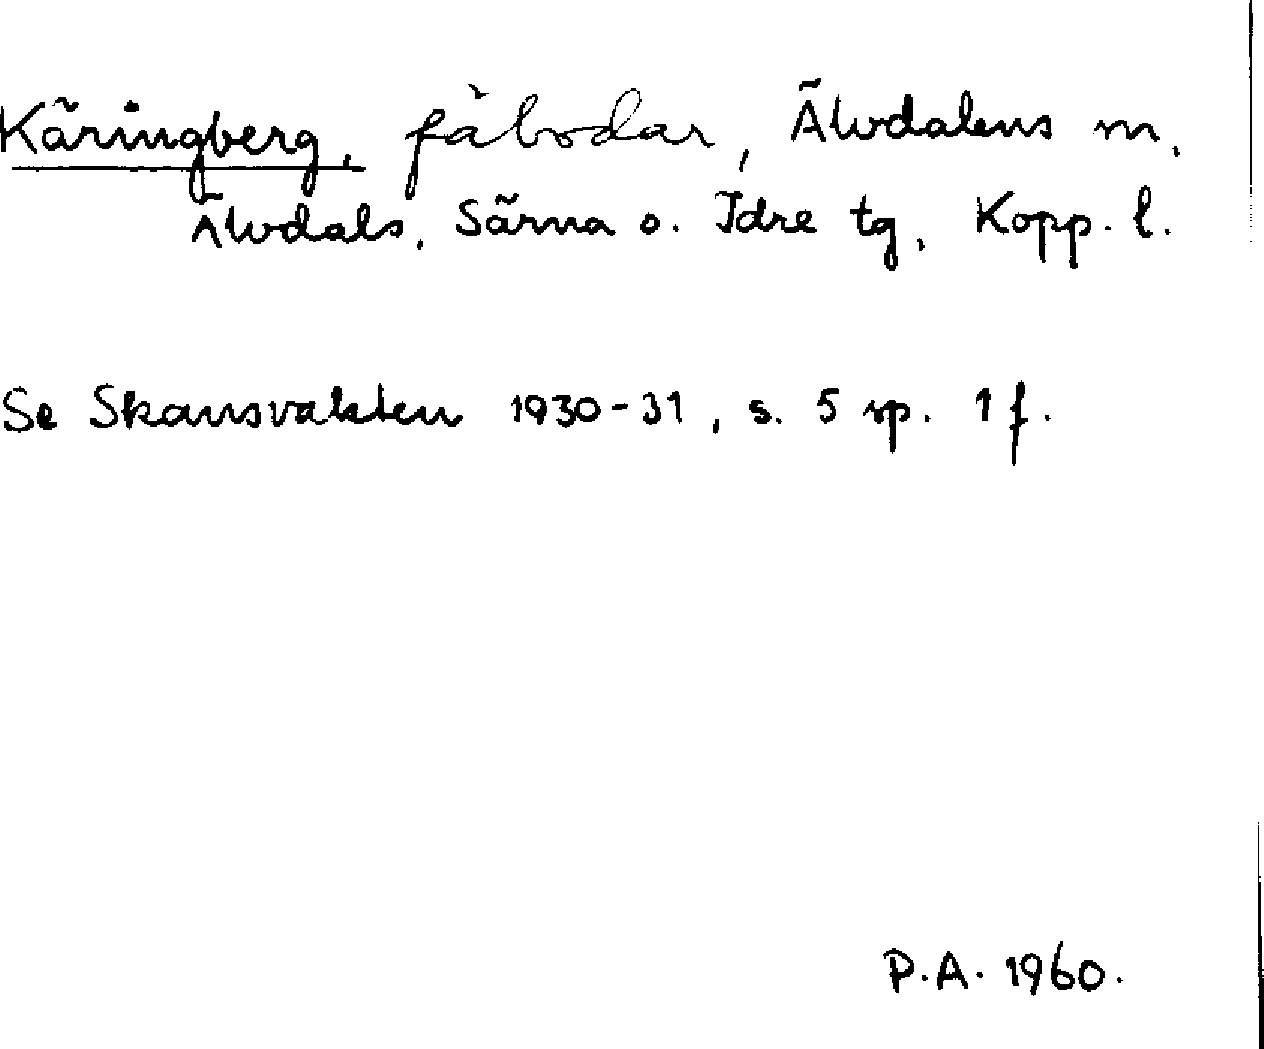 Käringberg, fäbodar, Älvdalens m,
Älvdals, Särna o. Idre tg, Kopp. l.
Se Skansvakten 1930-31, s. 5 sp. 1 f.
P.A. 1960.